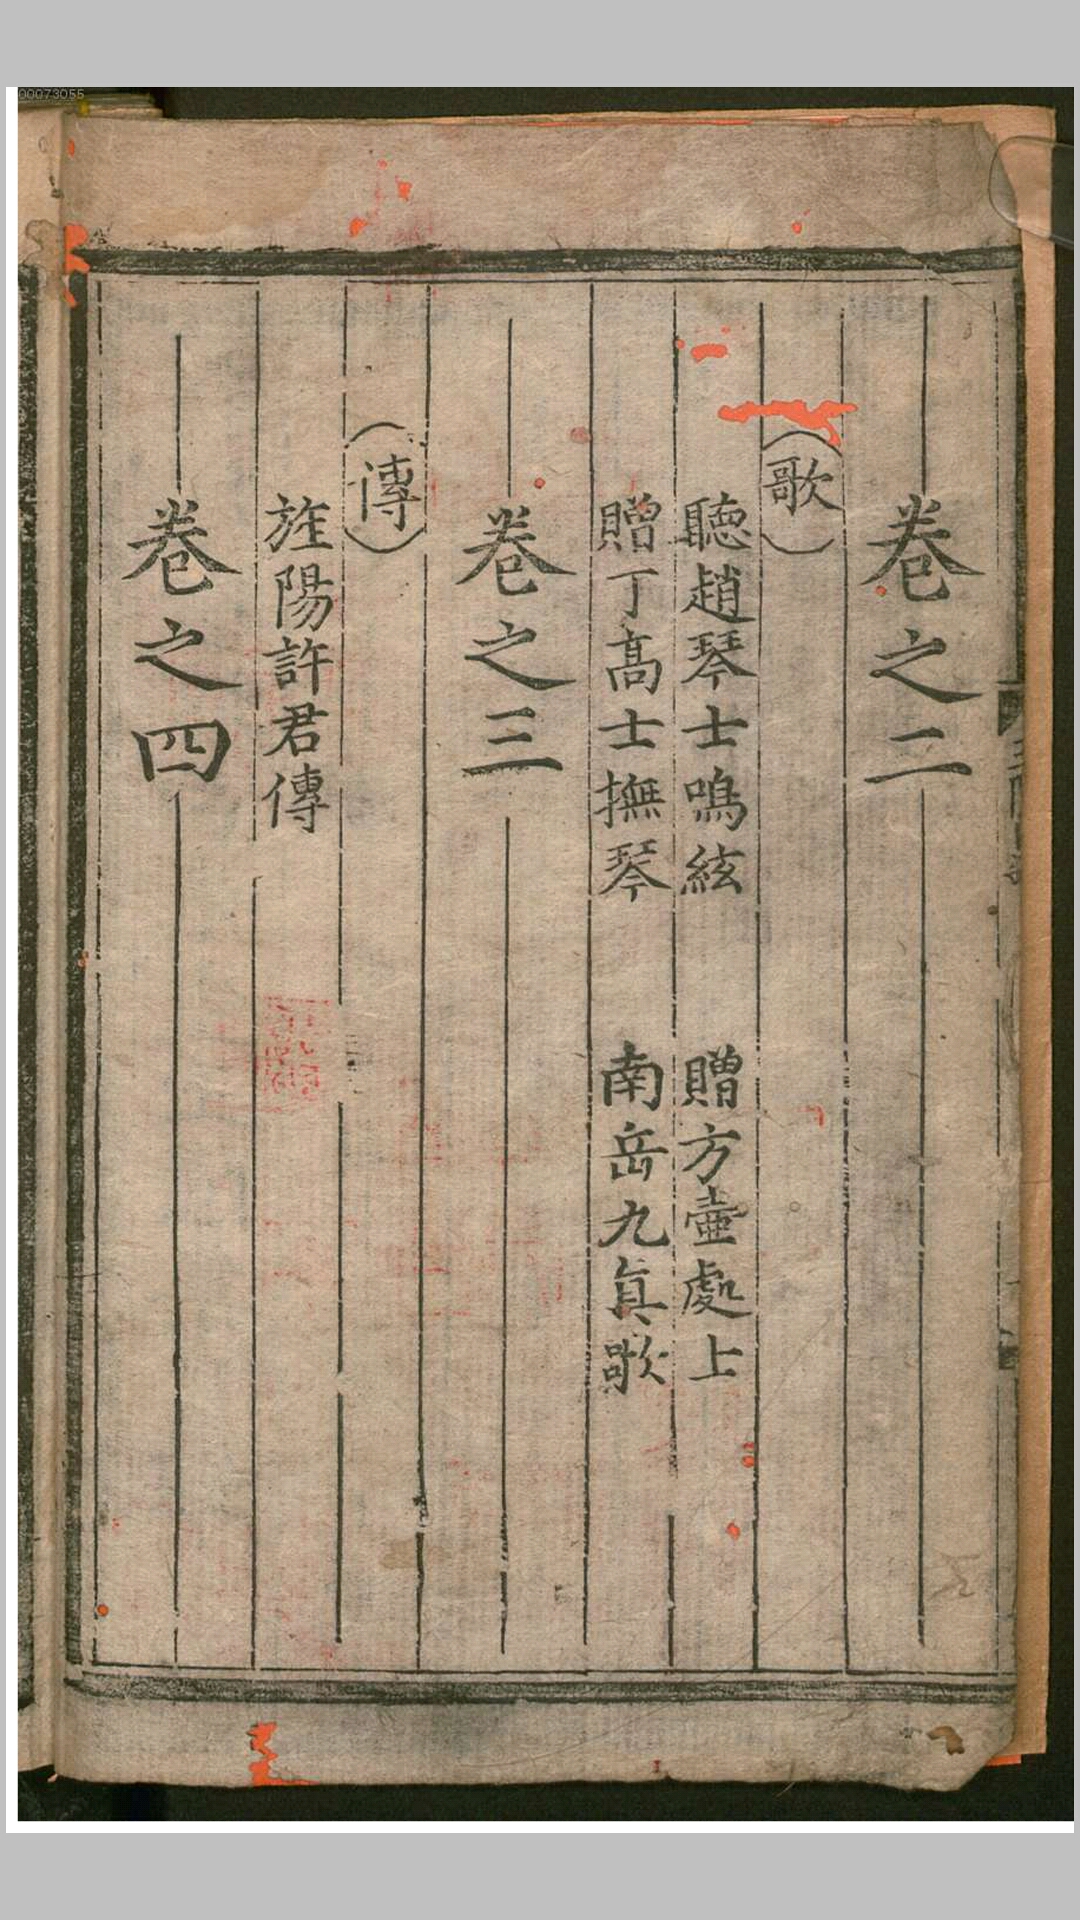 00073055
卷之二
歌
聽趙琴士鳴絃 贈方壺處士
贈丁髙士撫琴 南岳九眞歌
卷之三
傳
旌陽許君傳
卷之四